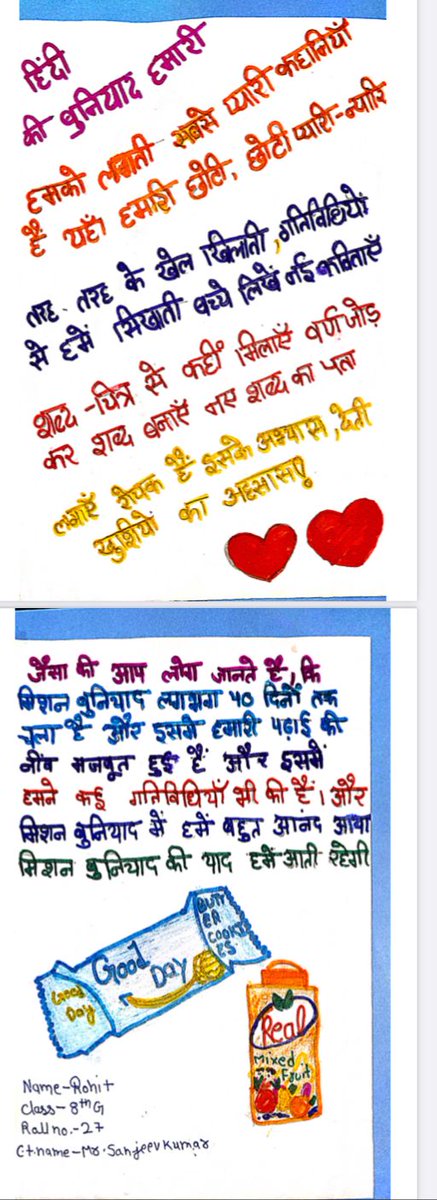 हिंदी
की बुनियाद हमारी
हमको लगती सबसे प्यारी कहानियाँ
हैं यहाँ हमारी छोटी, छोटी प्यारी-न्यारि
तरह-तरह के खेल खिलाती, गतिविधियों
से हमें सिखाती बच्चे लिखें नई कविताएँ
शब्द-चित्र से कहीं मिलाएँ वर्ण जोड़
कर शब्द बनाएँ नए शब्द का पता
लगाएँ रोचक हैं इसके अभ्यास, देती
खुशियों का अहसास
जैसा की आप लोग जानते है, कि
मिशन बुनियाद लगभग 40 दिनों तक
चला है और इससे हमारी पढ़ाई की
नींव मजबूत हुई हैं और इसमें
हमने कई गतिविधियाँ भी की हैं। और
मिशन बुनियाद में हमें बहुत आनंद आया
मिशन बुनियाद की याद हमें आती रहेगी
BUTT
ER
COOKI
ES
Good
Day
Good
Day
Real
Mixed
Fruit
Name-Rohit
Class-8th G
Roll no.-27
Ct.name-Mr.Sanjeev Kumar